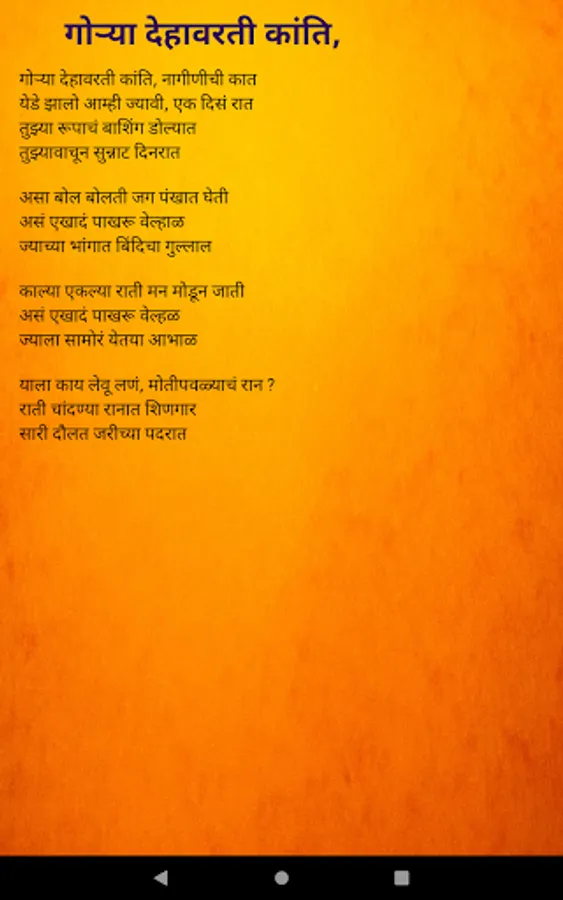 गोऱ्या देहावरती कांति,
गोऱ्या देहावरती कांति, नागीणीची कात
येडे झालो आम्ही ज्यावी, एक दिसं रात
तुझ्या रूपाचं बाशिंग डोल्यात
तुझ्यावाचून सुन्नाट दिनरात
असा बोल बोलती जग पंखात घेती
असं एखादं पाखरू वेल्हाळ
ज्याच्या भांगात बिंदिचा गुल्लाल
काल्या एकल्या राती मन मोडून जाती
असं एखादं पाखरू वेल्हळ
ज्याला सामोरं येतया आभाळ
याला काय लेवू लणं, मोतीपवळ्याचं रान ?
राती चांदण्या रानात शिणगार
सारी दौलत जरीच्या पदरात